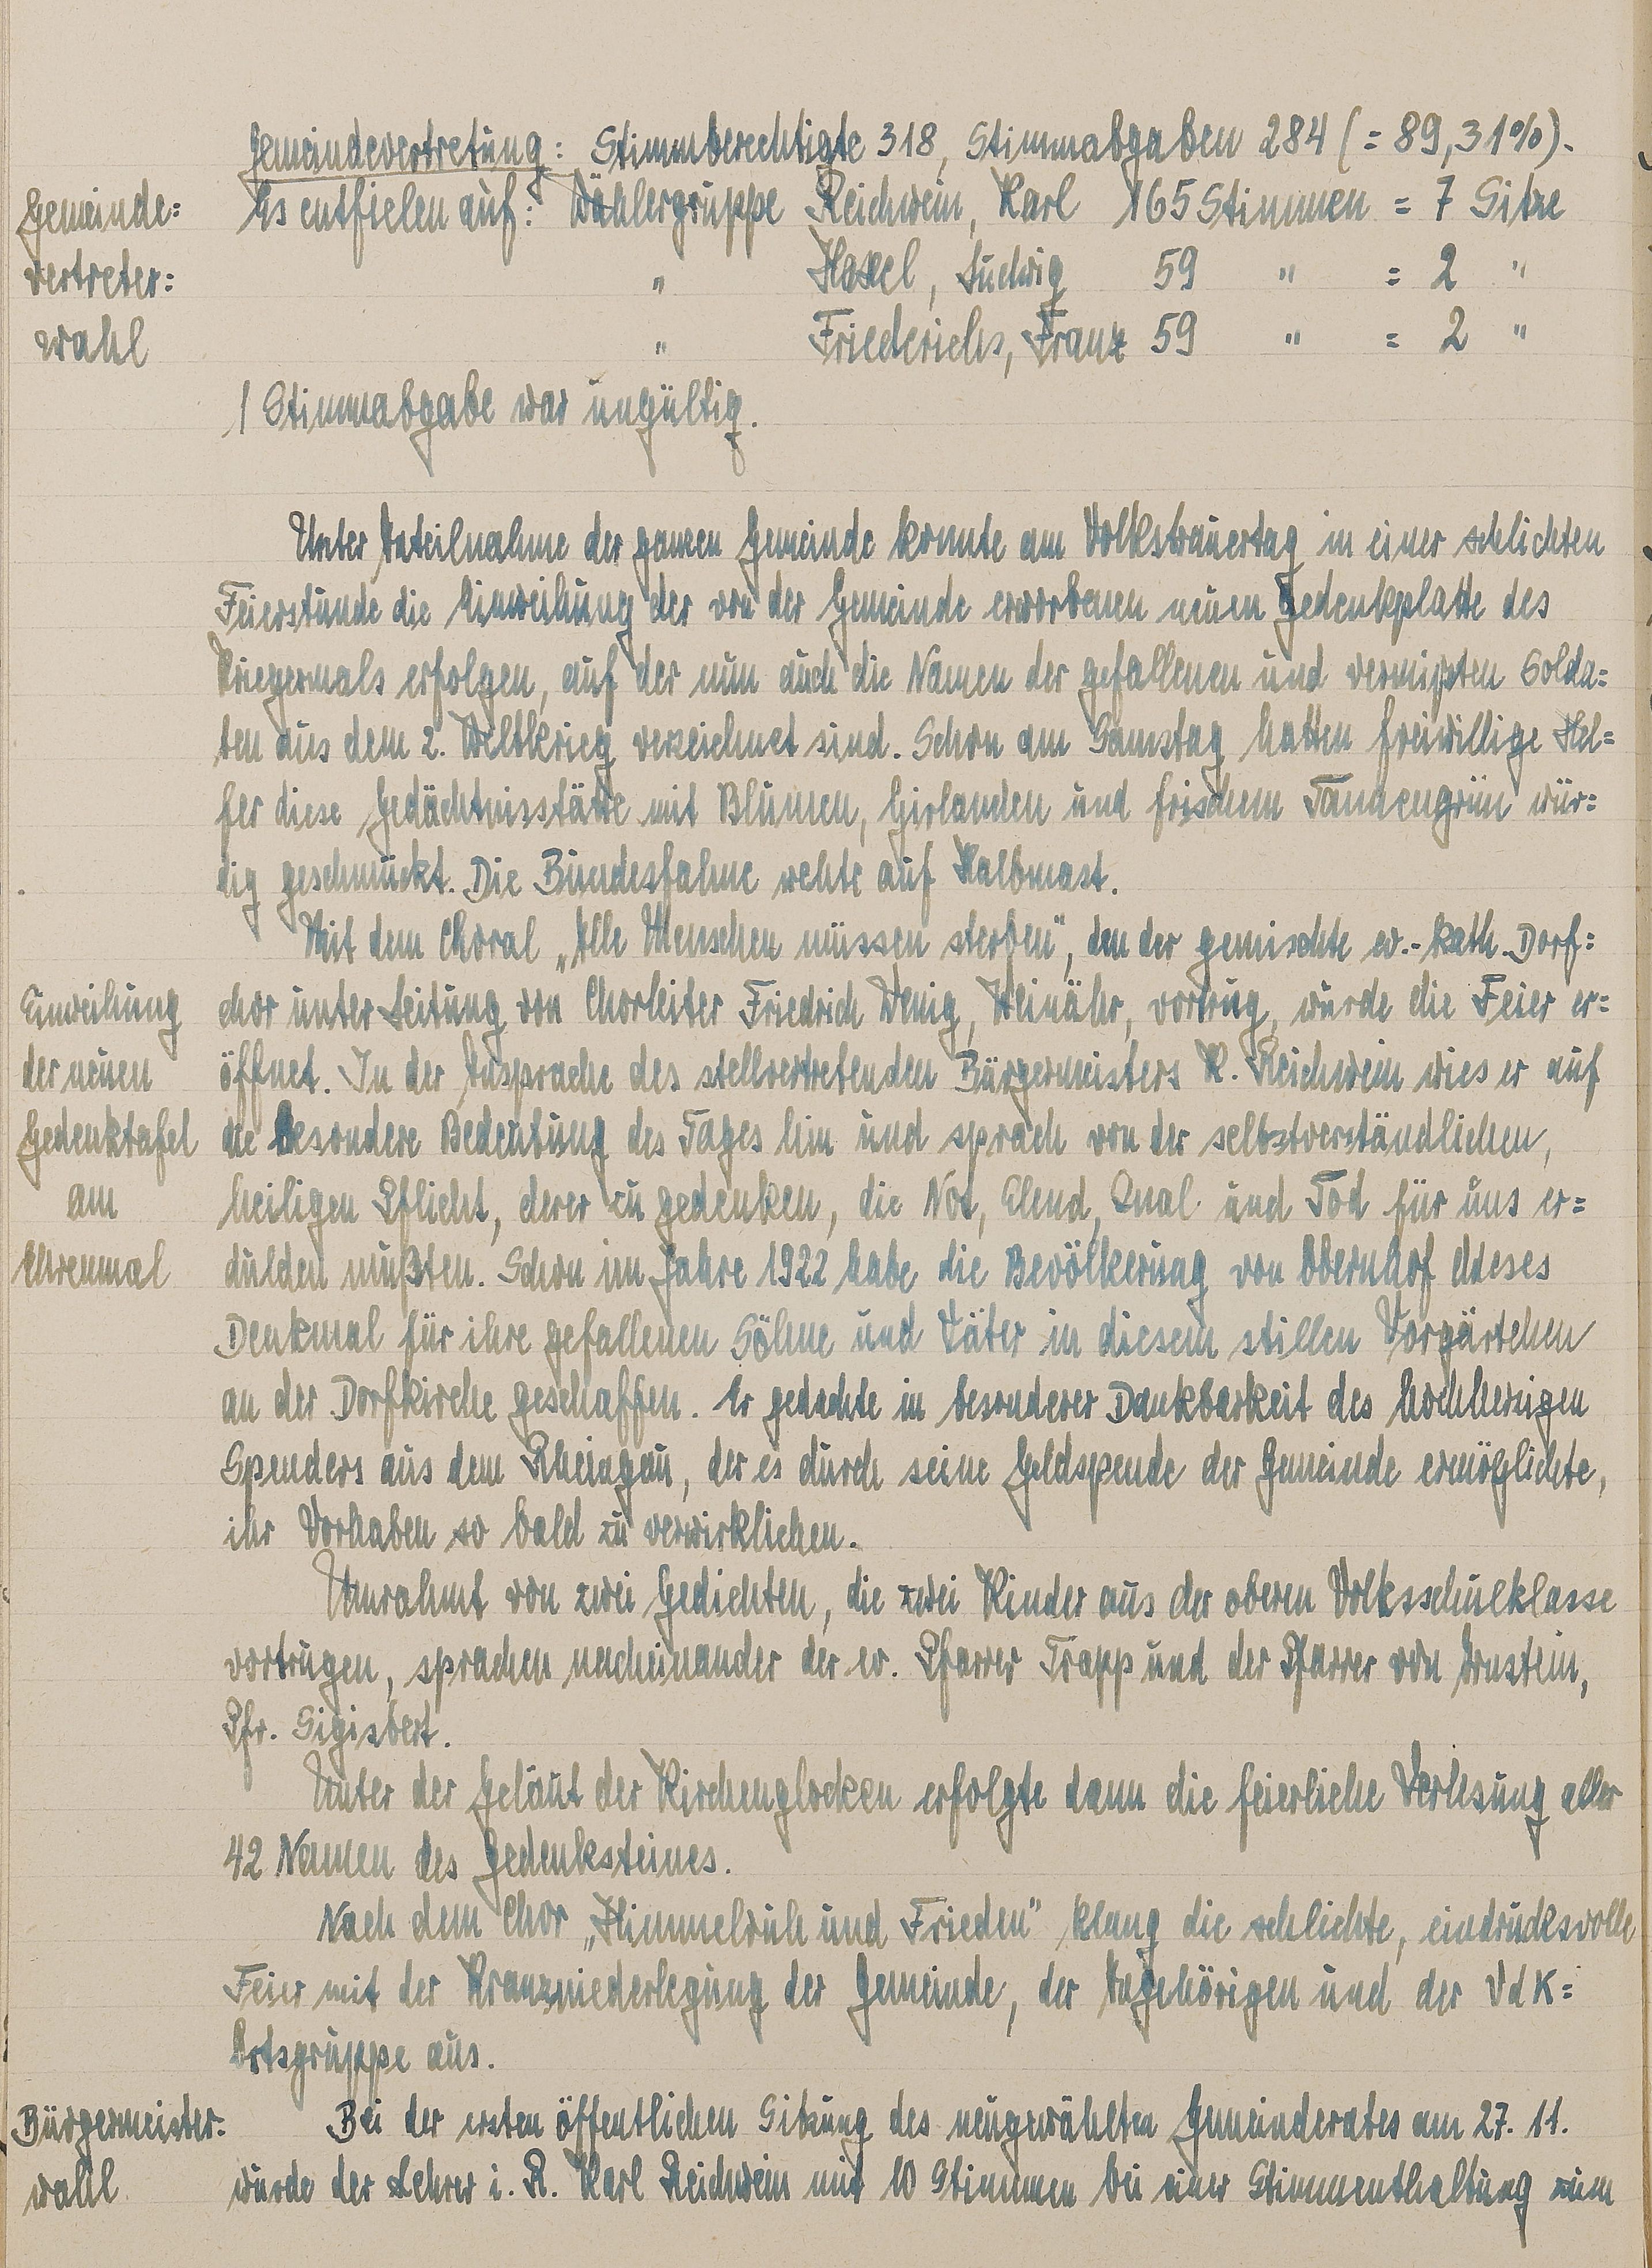 Gemeindevertretung: Stimmberechtigte 318, Stimmabgaben 284 (= 89,31%).
Gemeinde=
vertreter=
wahl
Es entfielen auf: Wählergruppe Reichwein, Karl 165 Stimmen = 7 Sitze
" Haxel, Ludwig 59 " = 2 "
" Friederichs, Franz 59 " = 2 "
1 Stimmabgabe war ungültig.
Unter Anteilnahme der ganzen Gemeinde konnte am Volkstrauertag in einer schlichten
Feierstunde die Einweihung der von der Gemeinde erworbenen neuen Gedenkplatte des
Kriegermals erfolgen, auf der nun auch die Namen der gefallenen und vermißten Solda=
ten aus dem 2. Weltkrieg verzeichnet sind. Schon am Samstag hatten freiwillige Hel=
fer diese Gedächtnisstätte mit Blumen, Girlanden und frischem Tannengrün wür=
dig geschmückt. Die Bundesfahne wehte auf Halbmast.
Mit dem Choral „Alle Menschen müssen sterben", den der gemischte ev.-kath. Dorf=
Einweihung
der neuen
Gedenktafel
am
Ehrenmal
chor unter Leitung von Chorleiter Friedrich Wenig, Weinähr, vortrug, wurde die Feier er=
öffnet. In der Ansprache des stellvertretenden Bürgermeisters K. Reichwein wies er auf
die besondere Bedeutung des Tages hin und sprach von der selbstverständlichen,
heiligen Pflicht, derer zu gedenken, die Not, Elend, Qual und Tod für uns er=
dulden mußten. Schon im Jahre 1922 habe die Bevölkerung von Obernhof dieses
Denkmal für ihre gefallenen Söhne und Väter in diesem stillen Vorgärtchen
an der Dorfkirche geschaffen. Er gedachte in besonderer Dankbarkeit des hochherzigen
Spenders aus dem Rheingau, der es durch seine Geldspende der Gemeinde ermöglichte,
ihr Vorhaben so bald zu verwirklichen.
Umrahmt von zwei Gedichten, die zwei Kinder aus der oberen Volksschulklasse
vortrugen, sprachen nacheinander der ev. Pfarrer Trapp und der Pfarrer von Arnstein,
Pfr. Sigisbert.
Unter der Geläut der Kirchenglocken erfolgte dann die feierliche Verlesung aller
42 Namen des Gedenksteines.
Nach dem Chor „Himmelruh und Frieden" klang die schlichte, eindrucksvolle
Feier mit der Kranzniederlegung der Gemeinde, der Angehörigen und der VdK=
Ortsgruppe aus.
Bürgermeister-
wahl
Bei der ersten öffentlichen Sitzung des neugewählten Gemeinderates am 27. 11.
wurde der Lehrer i. R. Karl Reichwein mit 10 Stimmen bei einer Stimmenthaltung zum